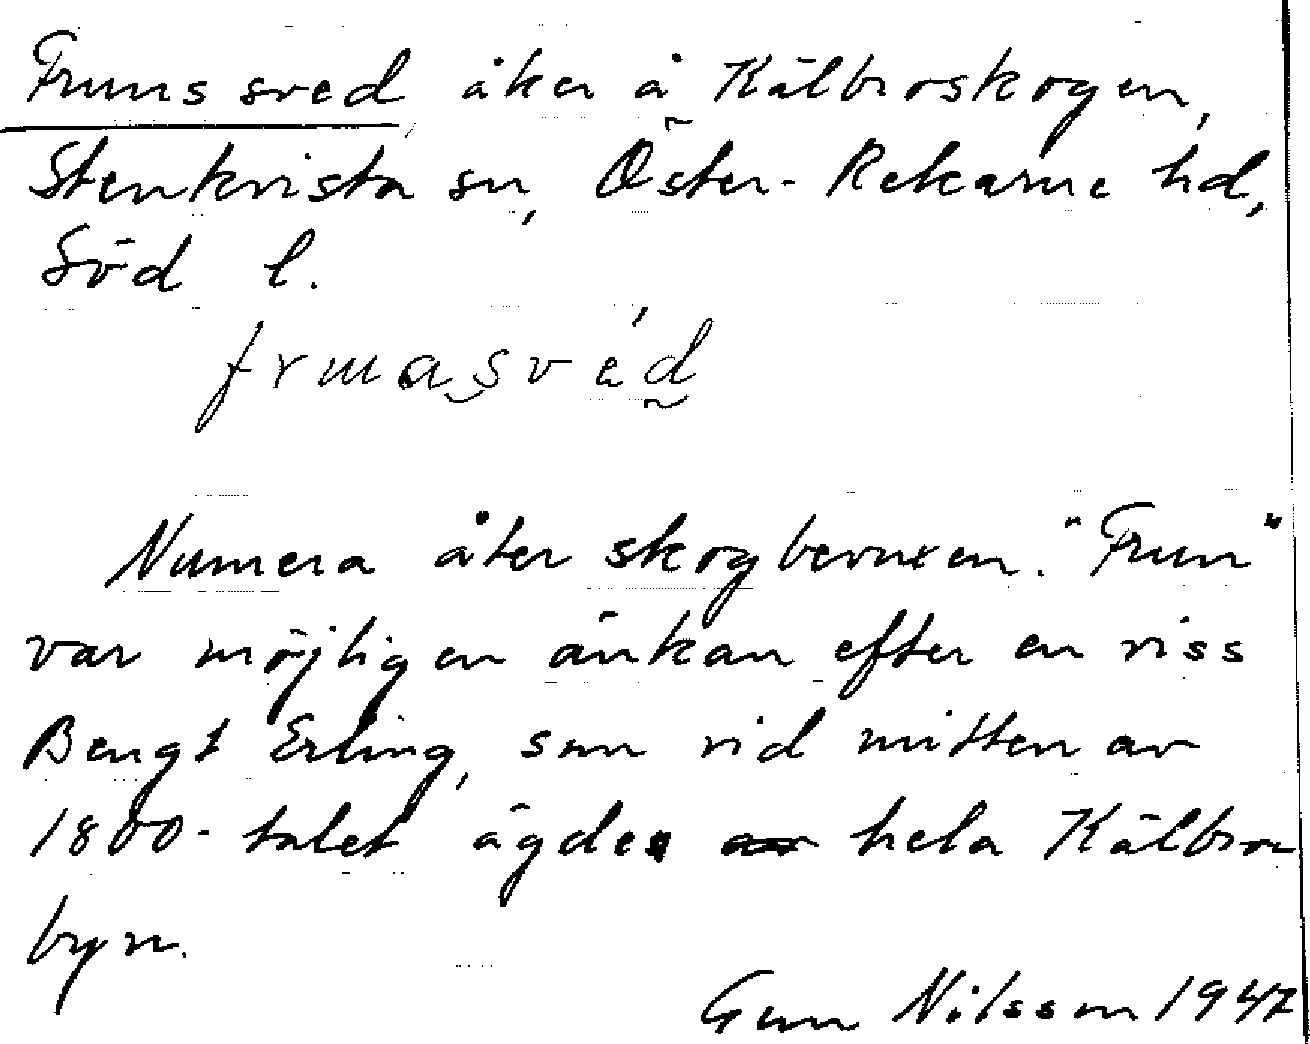 Fruns sved, åker å Kälbroskogen,
Stenkvista sn, Öster-Rekarne hd,
Söd l.
Numera åter skogbevuxen. "Frun"
var möjligen änkan efter en viss
Bengt Erling, som vid mitten av
1800-talet ägde hela Kälbro
byn.
Gun Nilsson 1947